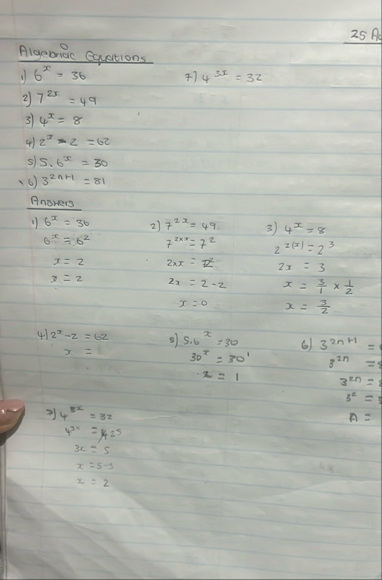 25
Algebraic Equations
1) 6^x = 36
7) 4^3x = 32
2) 7^2x = 49
3) 4^x = 8
4) 2^x - 2 = 62
5) 5.6^x = 30
6) 3^2n+1 = 81
Answers
1) 6^x = 36
6^x = 6^2
x = 2
x = 2
2) 7^2x = 49
7^2xx = 7^2
2xx = 2
2x = 2-2
x = 0
3) 4^x = 8
2^2(x) = 2^3
2x = 3
x = 3/1 x 1/2
x = 3/2
4) 2^x - 2 = 62
x =
5) 5.6^x = 30
30^x = 30^1
x = 1
6) 3^2n+1 =
3^2n =
3^2n =
3^2 =
A =
= 32
3x = 5
x = 5-3
x = 2